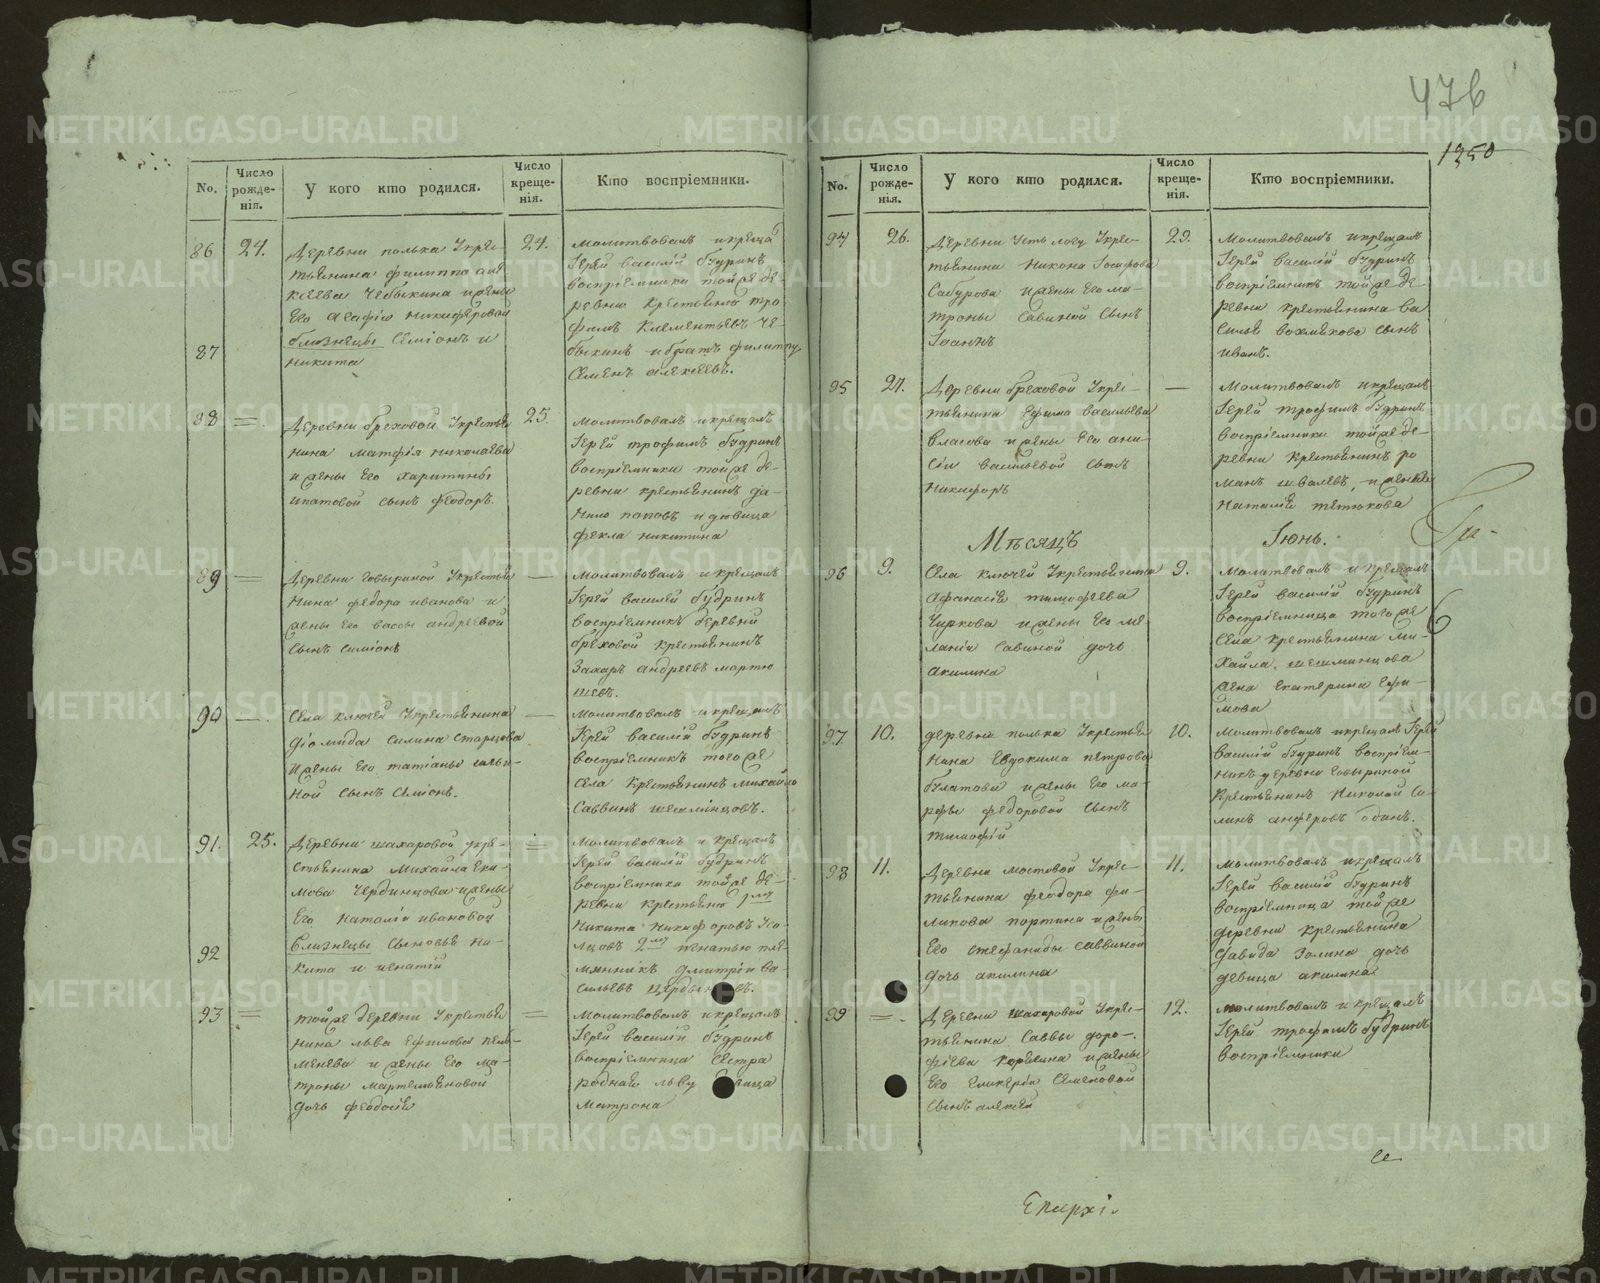 476
1350
No.
Число рожде-нія.
У кого кто родился.
Число креще-нія.
Кто воспріемники.
86
24.
Деревни полька Укрес-
тьянина филиппа але
ксеева Чебыкина ижены
Его Агафiи никифоровой
близнецы Семіонъ и
87
никита
24.
молитвовалъ икреща
Іерей василій бударинъ
воспріемники тойже де-
ревни крестьянинъ тро
фимъ Клементьевъ че-
быкинъ ибратъ филиппу
Семенъ алексеевъ.
88
=
Деревни бреховой Укрестья
нина матфія николаева
ижены Его Харитины
ипатовой сынъ феодоръ.
25.
молитвовалъ икрещалъ
Іерей трофимъ бударинъ
воспріемники тойже де-
ревни крестьянинъ да-
нило поповъ идевица
фекла никитина
89
—
Деревни говыриной Укрестья
нина федора иванова и
жены Его вассы андреевой
Сынъ симіонъ
—
молитвовалъ икрещалъ
Іерей василій бударинъ
воспріемникъ деревни
бреховой крестьянинъ
Захаръ андреевъ мартю
шевъ.
90
—
Села ключей Укрестьянина
діомида силина старцова
ижены Его татіаны
ной сынъ Семіонъ.
—
молитвовалъ икрещалъ
Іерей василій бударинъ
воспріемникъ тогоже
села крестьянинъ михайло
Саввинъ шешминцовъ.
91.
25.
Деревни шахаровой укре-
стьянина михайла Еки-
мова Чердинцова ижены
Его наталіи ивановой
92
близнецы сыновья ни-
кита и игнатій
=
молитвовалъ и крещалъ
Іерей василій бударинъ
воспріемники тойже де-
ревни крестьяна 1му
никита никифоровъ
2му игнатью пле-
мянникъ дмитріи ва-
сильевъ
93
=
тойже деревни Укрестья
нина льва Ефимова
менева ижены Его ма-
троны мартемьяновой
дочь феодосія
=
молитвовалъ икрещалъ
Іерей василій бударинъ
воспріемница сестра
родная льву
матрона
No.
Число рожде-нія.
У кого кто родился.
Число креще-нія.
Кто воспріемники.
94
26.
Деревни усть логу Укрес-
тьянина никона Іосафова
Сабурова ижены Его ма-
троны Савиной сынъ
Іоаннъ
29.
молитвовалъ икрещалъ
Іерей василій бударинъ
воспріемникъ тойже де-
ревни крестьянина ва
силья вохмякова сынъ
иванъ.
95
27.
Деревни бреховой Укрес-
тьянина Ефима васильева
власова ижены Его ани-
сіи васильевой сынъ
никифоръ
—
молитвовалъ икрещалъ
Іерей трофимъ бударинъ
воспріемники тойже де-
ревни крестьянинъ ро
манъ
наталія
Мѣсяцъ
Іюнь.
96
9.
Села ключей Укрестьянина
Афанасія тимофеева
Чиркова ижены Его ме
ланіи савиной дочь
акилина
9.
молитвовалъ и крещалъ
Іерей василій бударинъ
воспріемница тогоже
села крестьянина ми-
хайла шешминцова
жена Екатерина Ефи-
мова
97
10.
деревни полька Укрестья
нина Евдокима петрова
булатова ижены Его ма
рфы федоровой сынъ
тимофій
10.
молитвовалъ икрещалъ Іерей
василій бударинъ воспріем-
никъ деревни говыриной
крестьянинъ николай са-
винъ анферовъ одинъ.
98
11.
Деревни мостовой Укрес-
тьянина феодора фи-
липова портина ижены
Его стефаниды саввиной
дочь акилина
11.
молитвовалъ икрещалъ
Іерей василій бударинъ
воспріемница тойже
деревни крестьянина
давида Зонина дочь
девица акилина
99
=
Деревни шахаровой Укрес-
тьянина Саввы доро-
фіева корелина ижены
Его гликеріи Семеновой
сынъ алексій
12.
молитвовалъ икрещалъ
Іерей трофимъ бударинъ
воспріемники
Епархі.